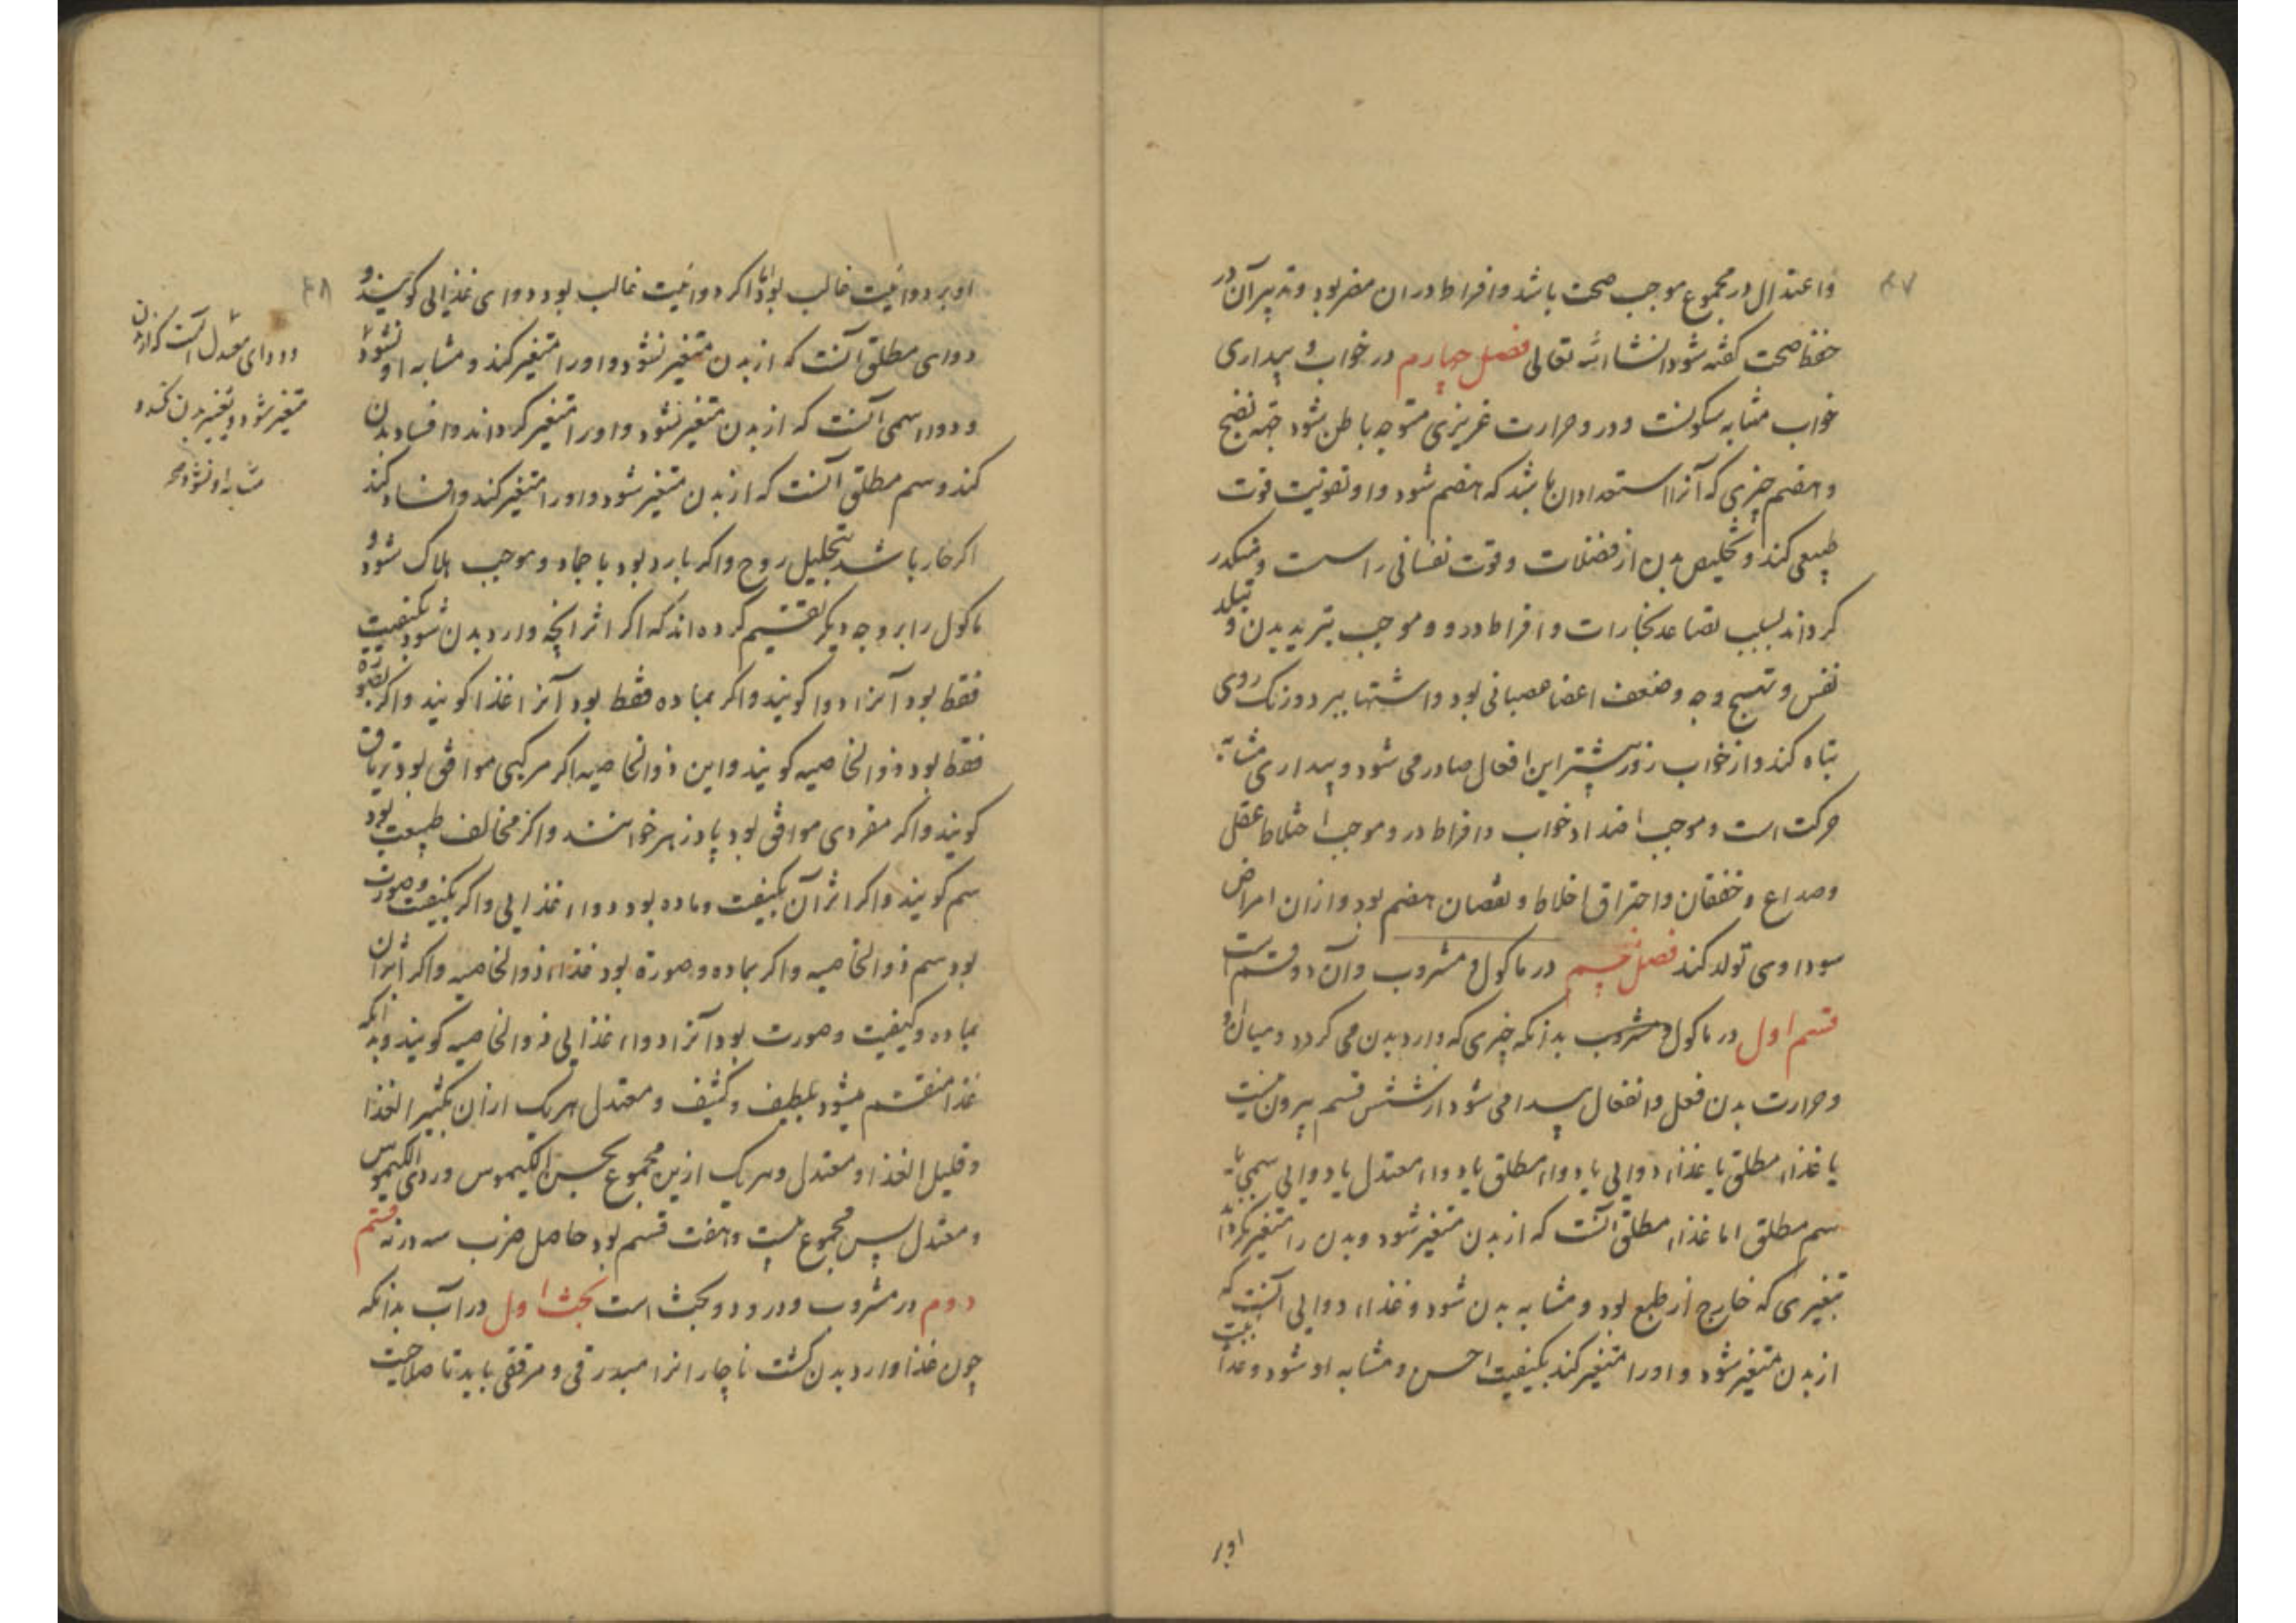 ۴۷
واعتدال در مجموع موجب صحت باشد وافراط دران مضر بود وتدبیر آن در
حفظ صحت کفته شود انشاءالله تعالی فصل چهارم در خواب و بیداری
خواب مشابه سکونست ودر و حرارت غریزی متوجه باطن شود جهة نضج
وهضم چیزی که آنرا استعداد ان باشد که هضم شود واو تقویت قوت
طبیعی کند وتخلیص بدن از فضلات وقوت نفسانی را سست ومکدر
کرداند بسبب تصاعد بخارات وافراط درو وموجب تبرید بدن و تبلد
نفس وتهبج وجه وضعف اعضا عصبانی بود واشتها ببرد ورنک روی
تباه کند واز خواب روز بیشتر این افعال صادر می شود وبیداری مشابه
حرکت است وموجب اضداد خواب وافراط درو موجب اختلاط عقل
وصداع وخفقان واحتراق اخلاط ونقصان هضم بود وازان امراض
سوداوی تولد کند فصل پنجم در ماکول و مشروب وآن دو قسم است
قسم اول در ماکول و مشروب بدانکه چیزی که وارد بدن می کردد ومیان او
وحرارت بدن فعل وانفعال پیدا می شود از شش قسم بیرون نیست
یا غذاء مطلق یا غذاء دوایی یا دواء مطلق یا دواء معتدل یا دوایی سمی یا
سم مطلق اما غذاء مطلق آنست که از بدن متغیر شود وبدن را متغیر نکرداند
تغییری که خارج از طبع بود ومشابه بدن شود وغذاء دوایی آنست که
از بدن متغیر شود واورا متغیر کند بکیفیت احس ومشابه او شود وغذائیت
او بر
۴۸
او بر دوائیت غالب بود اما اکر دوائیت غالب بود دوای غذایی کویند و
دوای مطلق آنست که از بدن متغیر نشود واورا متغیر کند ومشابه او نشود
ودواء سمی آنست که از بدن متغیر نشود واورا متغیر کرداند وافساد بدن
کند وسم مطلق آنست که از بدن متغیر نشود واورا متغیر کند وافساد کند
اکر حار باشد بتحلیل روح واکر بارد بود باجماد وموجب هلاک شود و
ماکول را بر وجه دیکر تقسیم کرده اند که اکر اثر انچه وارد بدن شود بکیفیت
فقط بود آنرا دوا کویند واکر بماده فقط بود آنرا غذا کویند واکر بصورة
فقط بود ذو الخاصیه کویند واین ذو الخاصیه اکر مرکبی موافق بود تریاق
کویند واکر مفردی موافق بود پادزهر خوانند واکر مخالف طبیعت بود
سم کویند واکر اثر آن بکیفیت وماده بود دواء غذایی واکر بکیفیت وصورت
بود سم ذو الخاصیه واکر بماده وصورة بود غذاء ذو الخاصیه واکر اثر آن
بماده وکیفیت وصورت بود آنرا دواء غذایی ذو الخاصیه کویند وبدانکه
غذا منقسم میشود بلطیف وکثیف ومعتدل هریک ازان بکثیر الغذا
وقلیل الغذا ومعتدل وهریک ازین مجموع بحسن الکیموس وردی الکیموس
ومعتدل پس مجموع بیست وهفت قسم بود حاصل ضرب سه در نه قسم
دوم در مشروب ودرو دو بحث است بحث اول در آب بدانکه
چون غذا وارد بدن کشت ناچار انرا مبدرقی ومرققی باید تا صلاحیت
ودوای معتدل آنست که از بدن
متغیر شود وتغییر بدن نکند و
مشابه او نشود صح